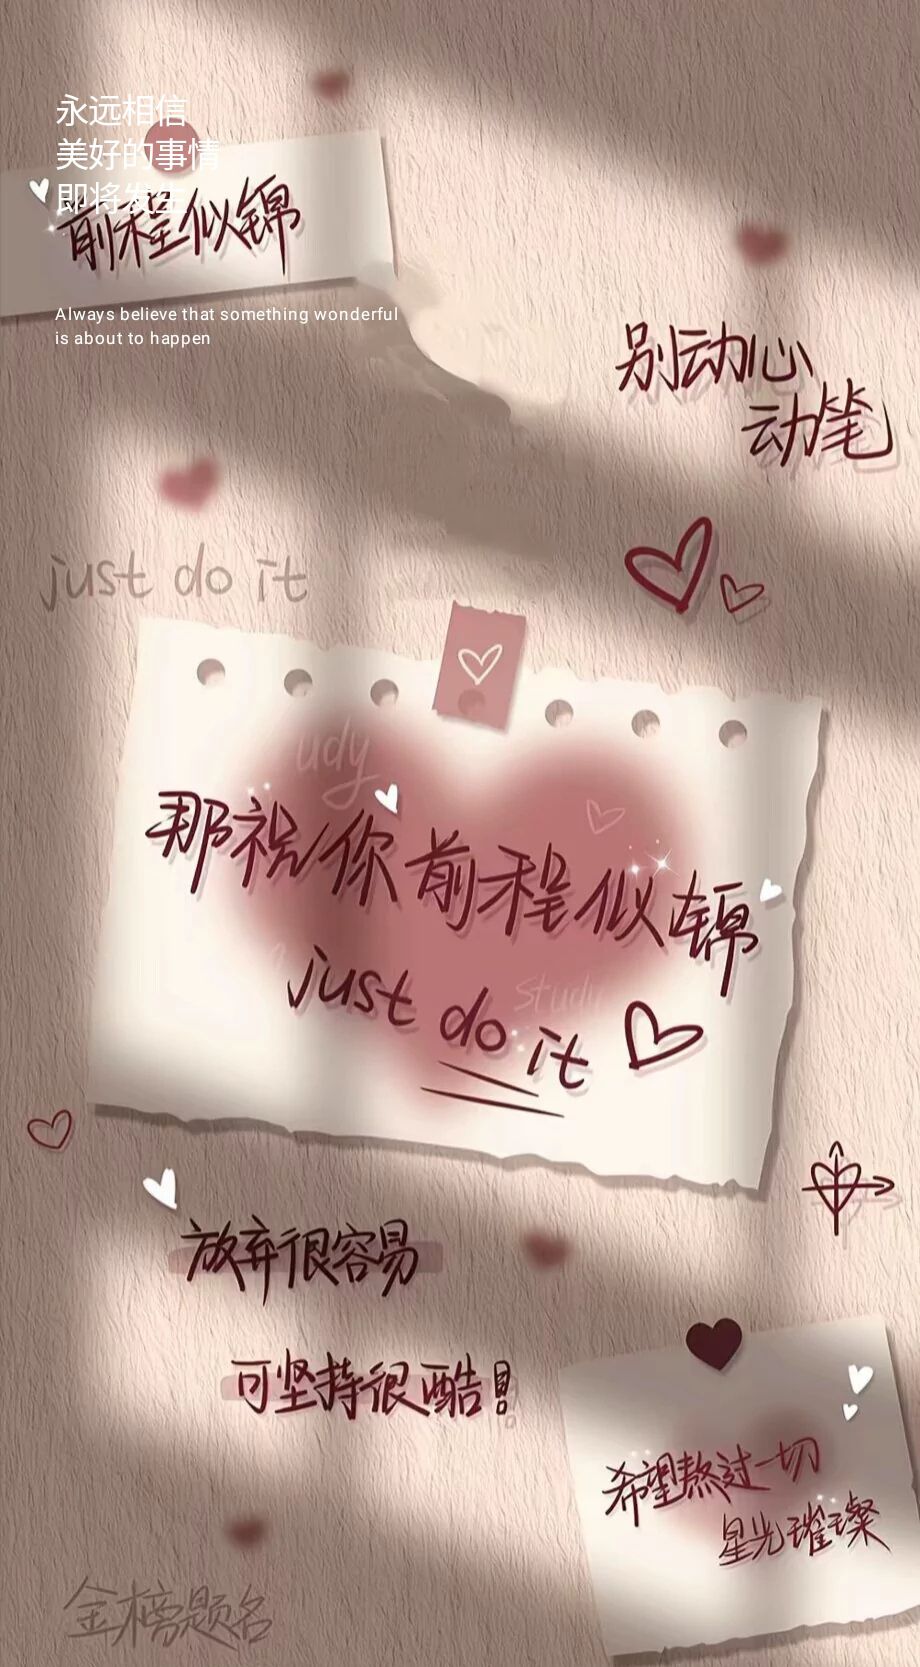 永远相信
美好的事情
即将发生
前程似锦
Always believe that something wonderful
is about to happen
别动心
动笔
just do it
udy
那祝你前程似锦
study
just do it
放弃很容易
可坚持很酷!
希望熬过一切
星光璀璨
金榜题名